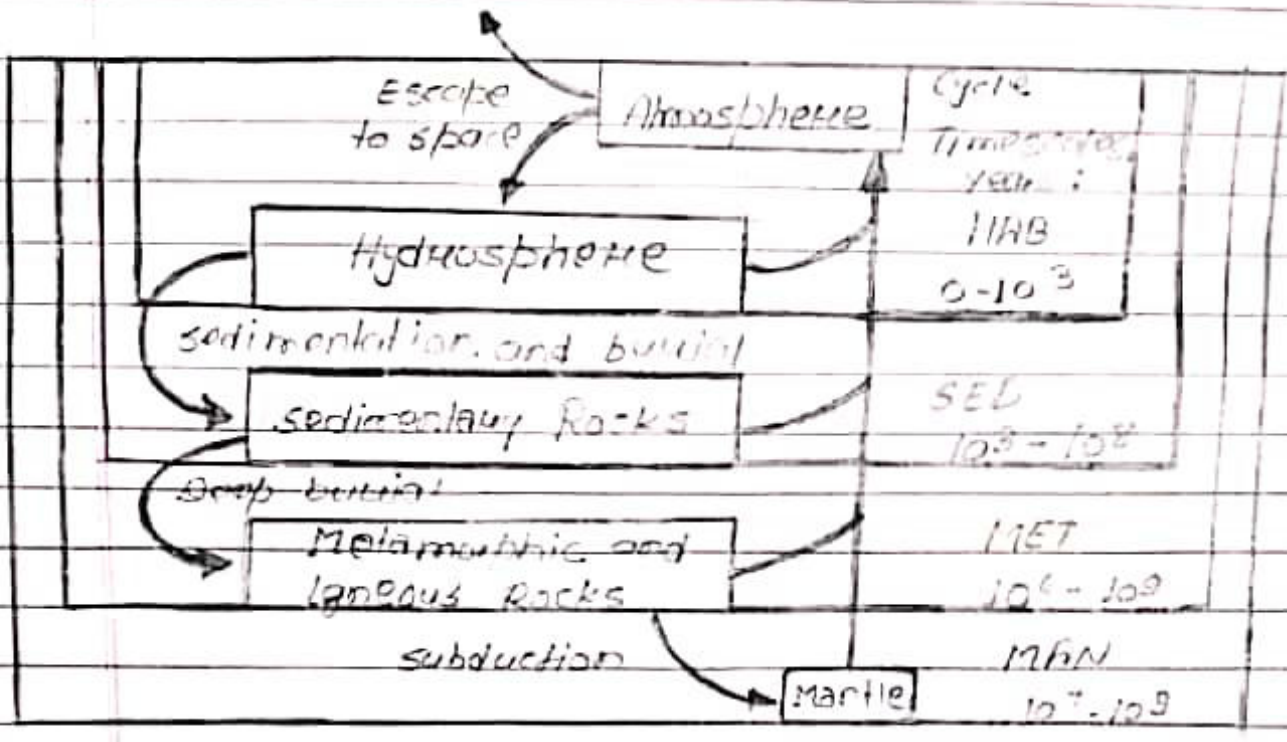 Escape
to space
Atmosphere
Cycle
Timescale
year :
HAB
0-10³
Hydrosphere
sedimentation. and burial
Sedimentary Rocks
SED
10³ - 10⁸
Deep burial
Metamorphic and
Igneous Rocks
MET
10⁶ - 10⁹
subduction
Mantle
MAN
10⁷ - 10⁹